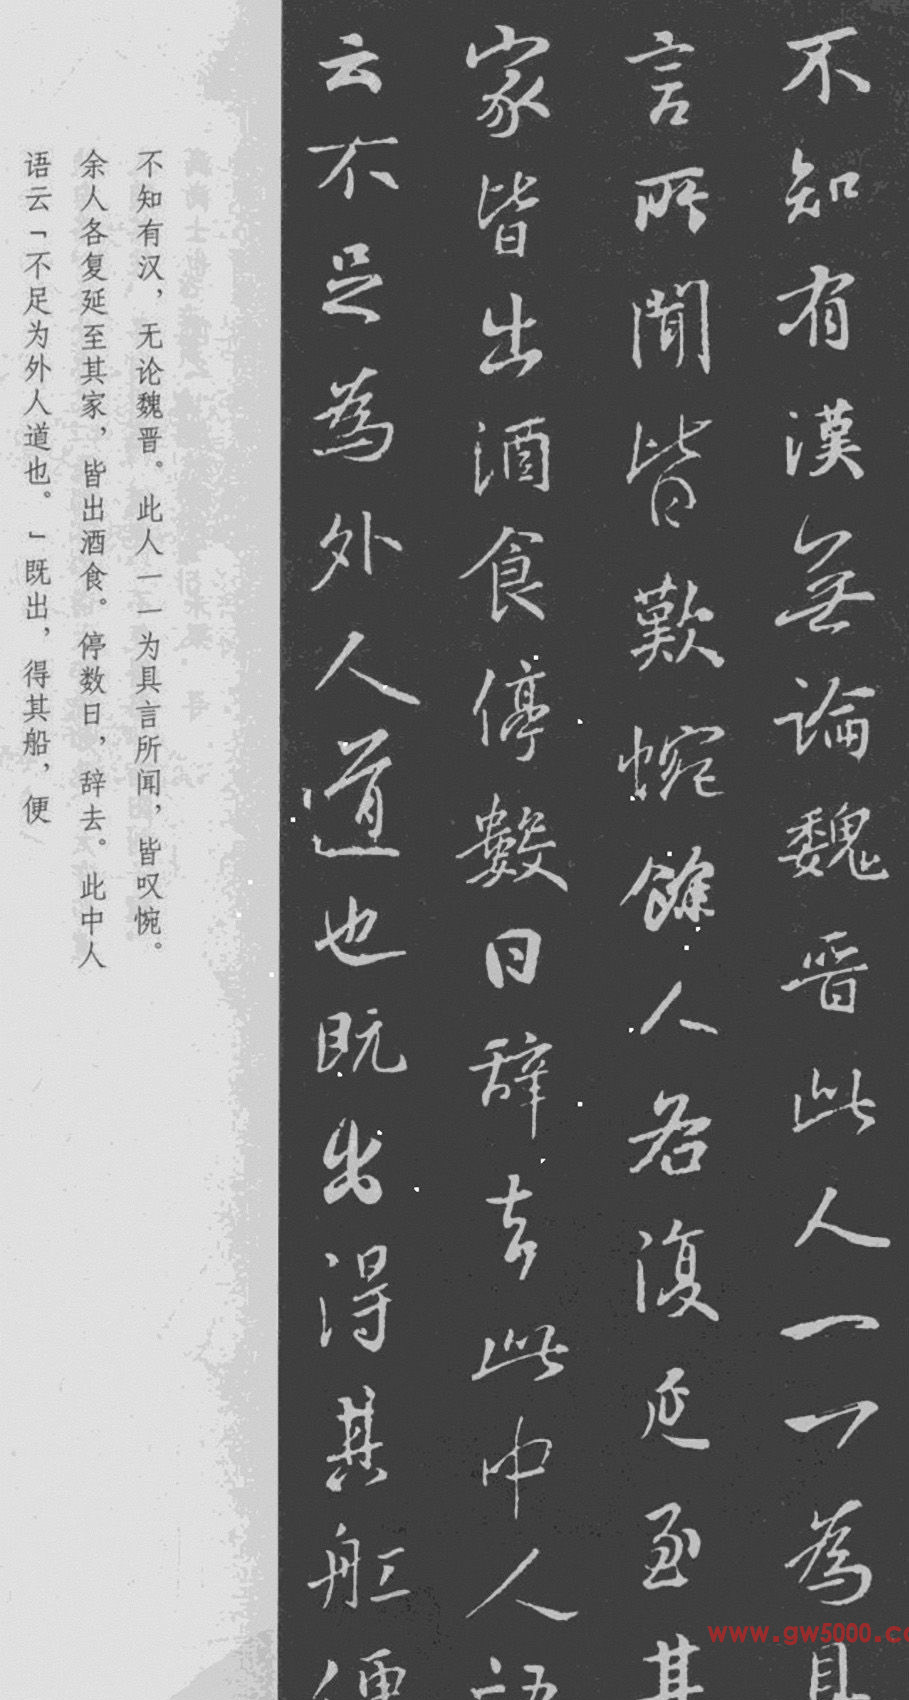 不知有漢無論魏晋此人一一為具
言所聞皆歎惋餘人各復延至其
家皆出酒食停數日辞去此中人語
云不足為外人道也既出得其船便
不知有汉，无论魏晋。此人一一为具言所闻，皆叹惋。
余人各复延至其家，皆出酒食。停数日，辞去。此中人
语云「不足为外人道也。」既出，得其船，便
www.gw5000.co